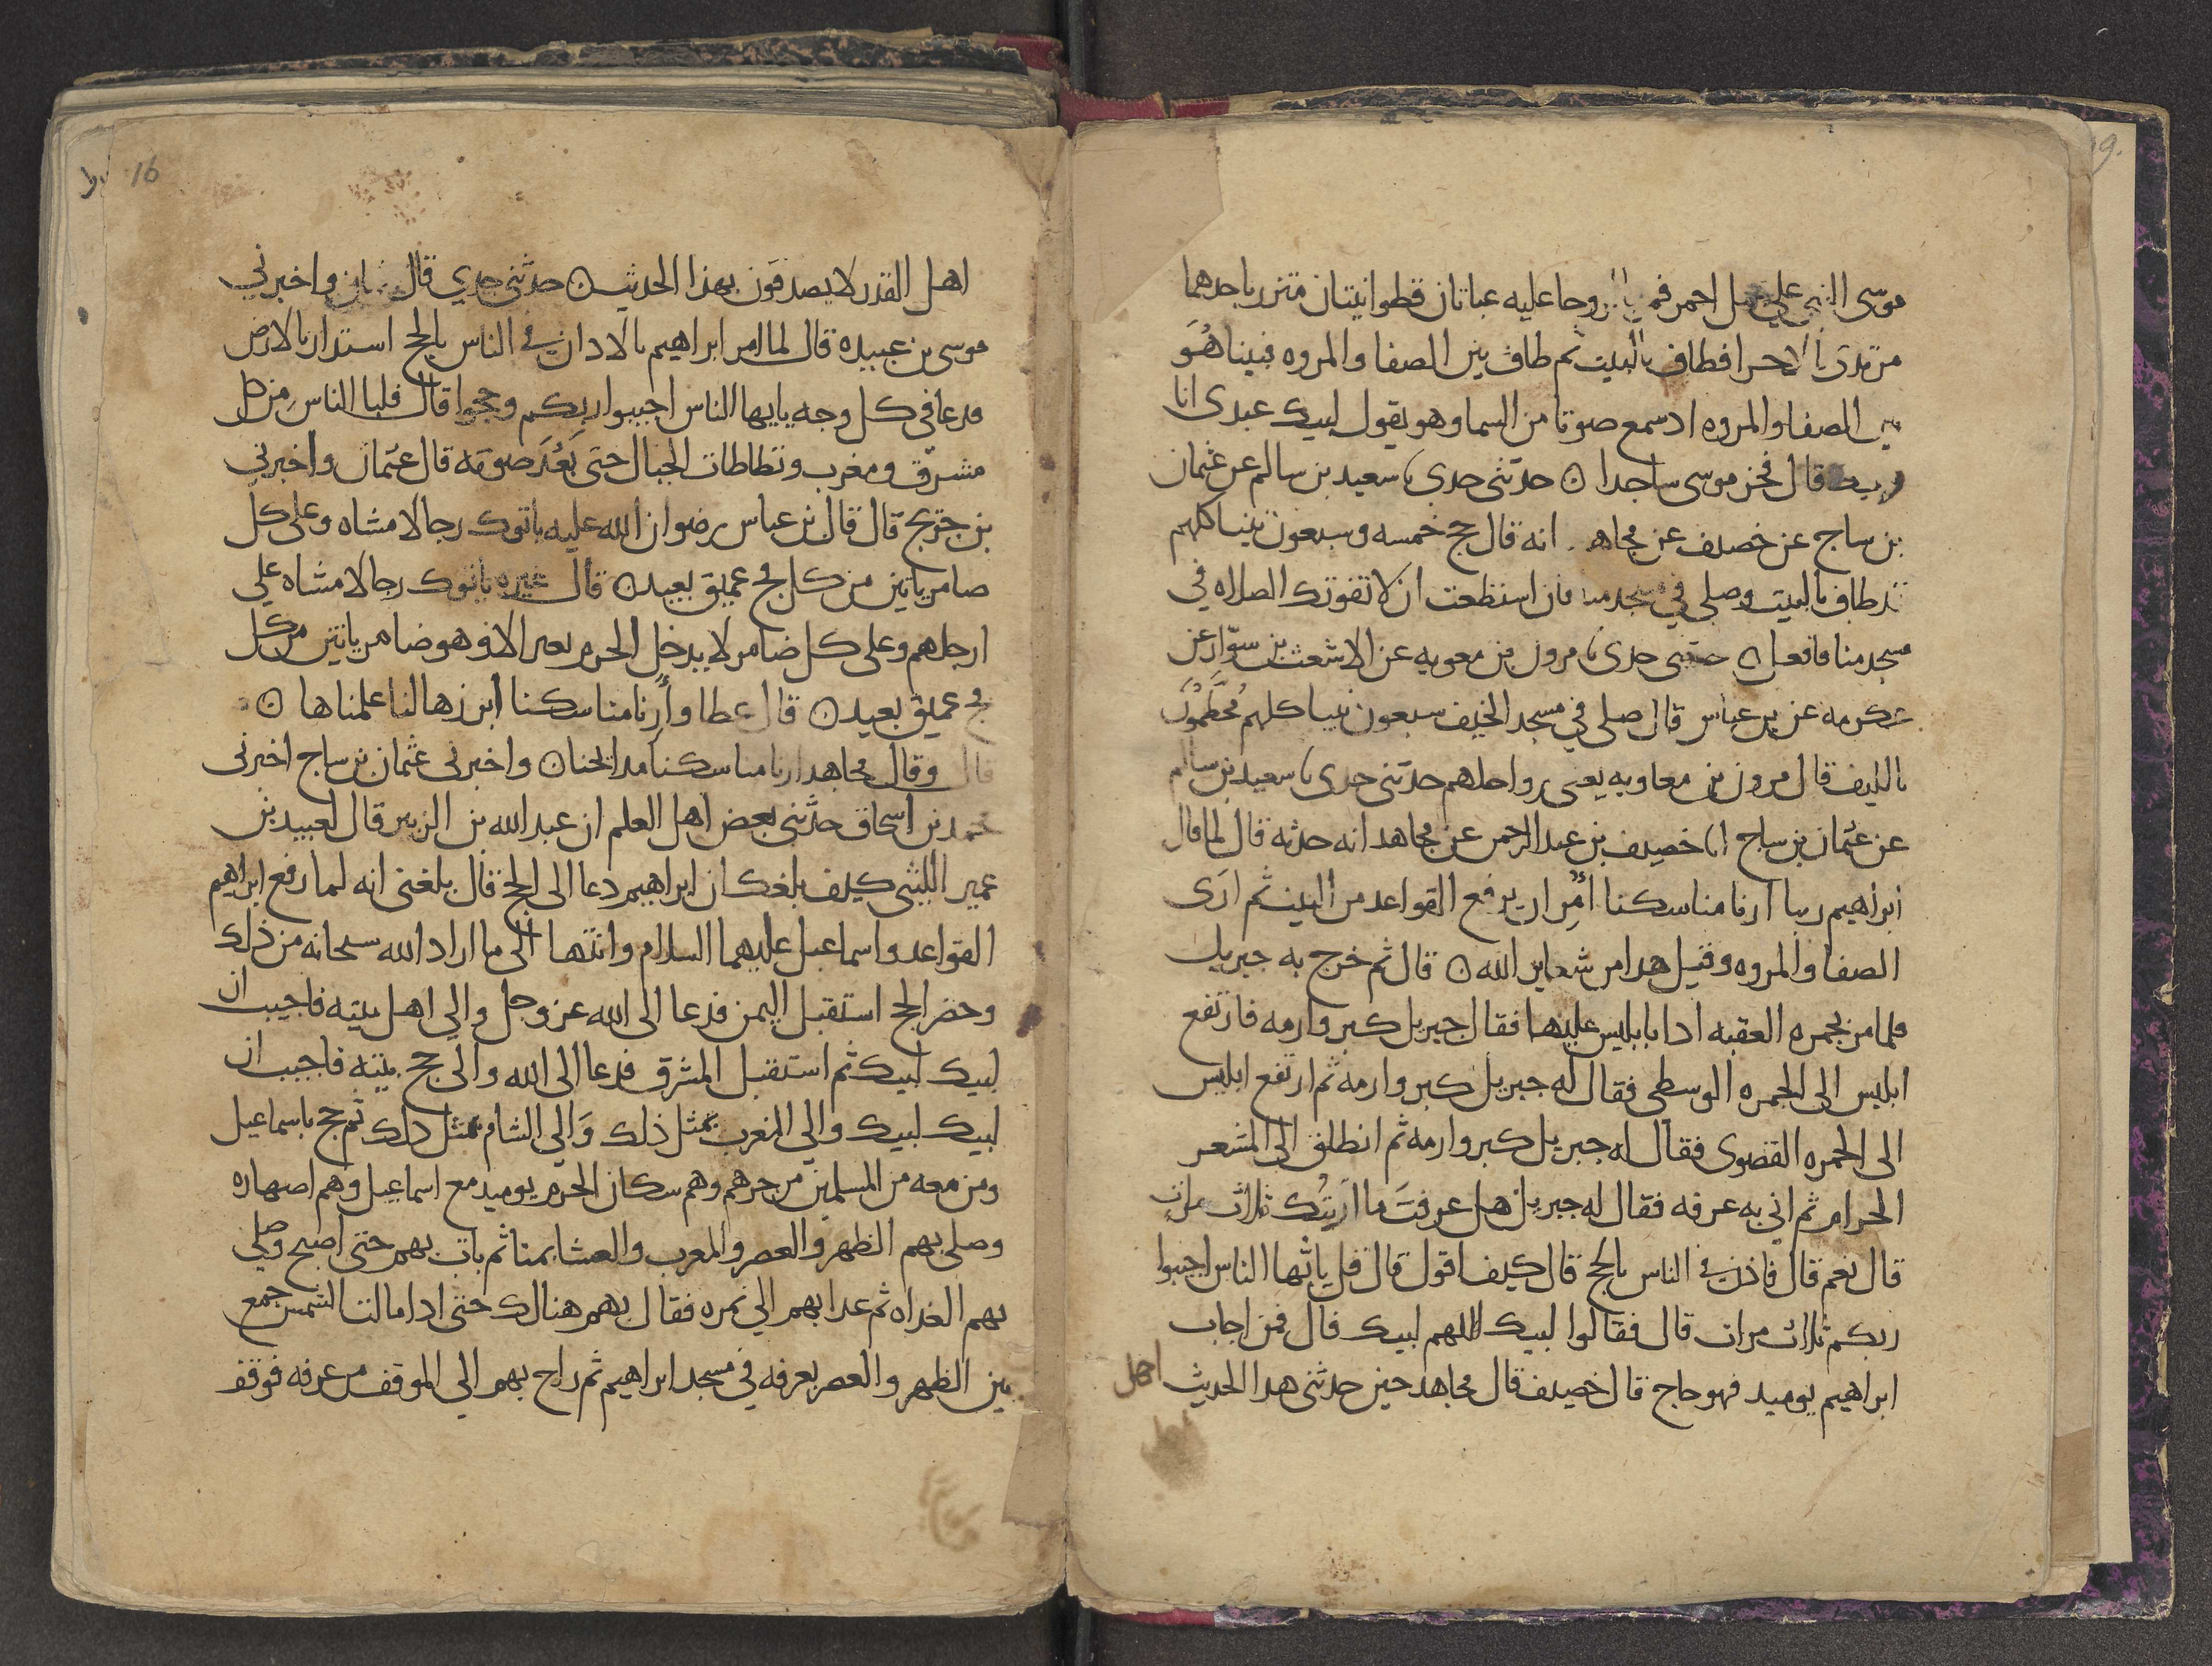 موسى النبي على جمل احمر فمر بالروحا عليه عباتان قطوانيتان متزر باحدهما
مرتدى بالاخرا فطاف بالبيت ثم طاف بين الصفا والمروه فبينا هُوَ
بين الصفا والمروه اد سمع صوتا من السما وهو يقول لبيك عبدى انا
معك قال فخر موسى ساجدا ۝ حدثنى جدى نا سعيد بن سالم عن عثمان
بن ساج عن خصيف عن مجاهد انه قال حج خمسه وسبعون نبيا كلهم
قد طاف بالبيت وصلى في مسجد منا فان استطعت ان لا تفوتك الصلاه في
مسجد منا فافعل ۝ حدثنى جدى نا مرون بن معويه عن الاشعث بن سوّار عن
عكرمه عن بن عباس قال صلى في مسجد الخيف سبعون نبيا كلهم مُخَطَّمُونَ
بالليف قال مرون بن معاويه يعنى رواحلهم حدثنى جدى نا سعيد بن سالم
عن عثمان بن ساج انا خصيف بن عبد الرحمن عن مجاهد انه حدثه قال لما قال
ابراهيم ربنا ارنا مناسكنا اُمِر ان يرفع القواعد من البيت ثم ارَى
الصفا والمروه وقيل هدا من شعاير الله ۝ قال ثم خرج به جبريل
فلما مر بجمره العقبه ادا بابليس عليها فقال جبريل كبر وارمه فارتفع
ابليس الى الجمره الوسطى فقال له جبريل كبر وارمه ثم ارتفع ابليس
الى الجمره القصوى فقال له جبريل كبر وارمه ثم انطلق الى المشعر
الحرام ثم اتى به عرفه فقال له جبريل هل عرفتَ ما ارَيتُك ثلاث مرات
قال نعم قال فاذن في الناس بالحج قال كيف اقول قال قل يا ايها الناس اجيبوا
ربكم ثلاث مرات قال فقالوا لبيك اللهم لبيك قال فمن اجاب
ابراهيم يوميد فهو حاج قال خصيف قال مجاهد حين حدثنى هدا الحديث
اهل
16
اهل القدر لا يصدقون بهذا الحديث ۝ حدثنى جدي قال واخبرني
موسى بن عبيده قال لما امر ابراهيم بالادان في الناس بالحج استدار بالارض
فدعا في كل وجه يا ايها الناس اجيبوا ربكم وحجوا قال فلبا الناس من كل
مشرق ومغرب وتطاطات الجبال حتى بَعُدَ صوته قال عثمان واخبرني
بن جريج قال قال بن عباس رضوان الله عليه ياتوك رجالا مشاه وعلى كل
ضامر ياتين من كل فج عميق بعيد ۝ قال غيره ياتوك رجالا مشاه على
ارجلهم وعلى كل ضامر لا يدخل الحرم بعير الا وهو ضامر ياتين من كل
فج عميق بعيد ۝ قال عطا وأرِنا مناسكنا ابرزها لنا علمناها ۝
قال وقال مجاهد ارنا مناسكنا مدابحنا ۝ واخبرنى عثمان بن ساج اخبرنى
محمد بن اسحاق حدثنى بعض اهل العلم ان عبد الله بن الزبير قال لعبيد بن
عمير الليثى كيف بلغك ان ابراهيم دعا الى الحج قال بلغنى انه لما رفع ابراهيم
القواعد واسماعيل عليهما السلام وانتها الى ما اراد الله سبحانه من ذلك
وحضر الحج استقبل اليمن فدعا الى الله عز وجل والي اهل بيته فاجيب ان
لبيك لبيك ثم استقبل المشرق فدعا الى الله والى حج بيته فاجيب ان
لبيك لبيك والي المغرب بمثل ذلك وَالي الشام بمثل دلك ثم حج باسماعيل
ومن معه من المسلمين من جرهم وهم سكان الحرم يوميد مع اسماعيل وهم اصهاره
وصلى بهم الظهر والعصر والمغرب والعشا بمنا ثم بات بهم حتى اصبح وصلي
بهم الغداه ثم غدا بهم الي نمره فقال بهم هنالك حتى ادا مالت الشمس جمع
بين الظهر والعصر بعرفه في مسجد ابراهيم ثم راح بهم الي الموقف من عرفه فوقف